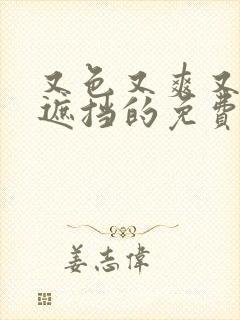 又色又爽又
遮挡的免费
姜志偉